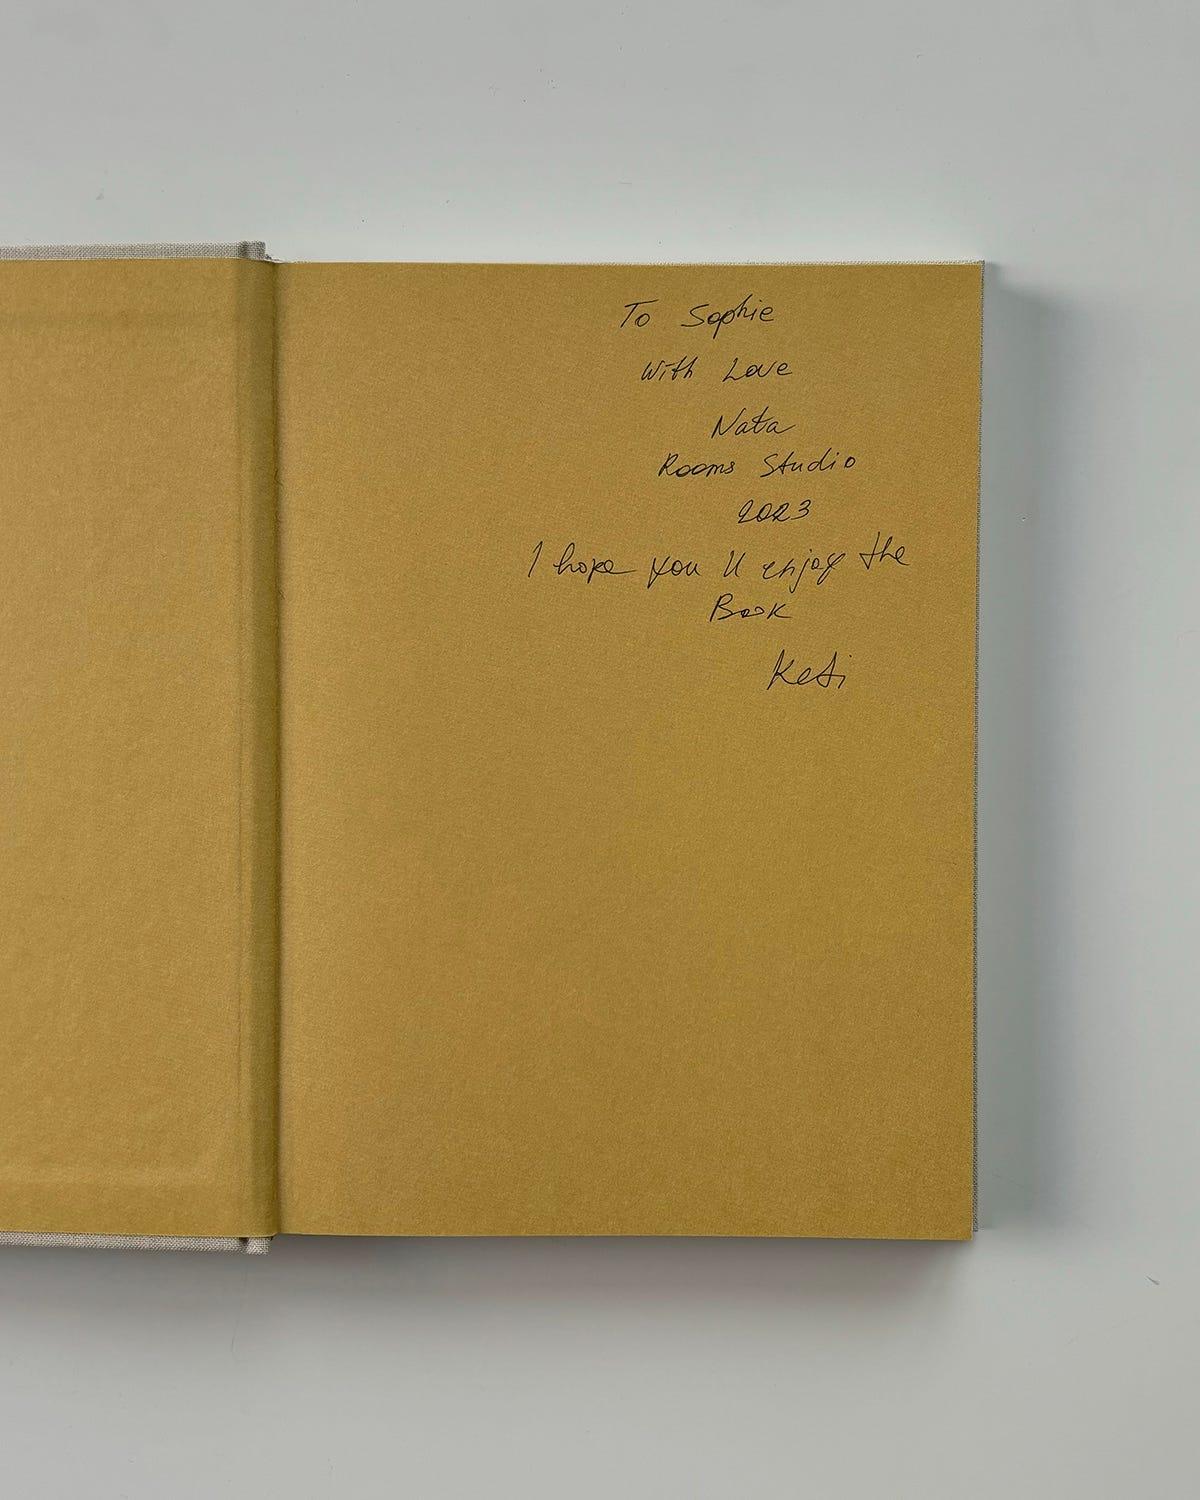 To Sophie
With Love
Nata
Rooms Studio
2023
I hope you ll enjoy the
Book
Keti